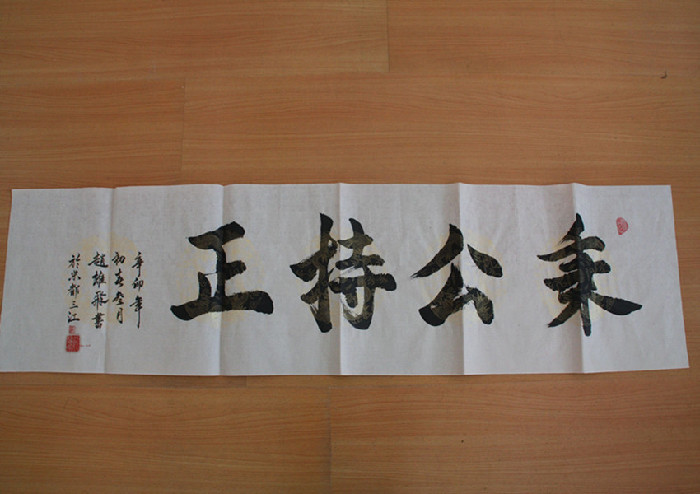 秉公持正
辛卯年
初春叁月
赵雄飛書
於京都三江